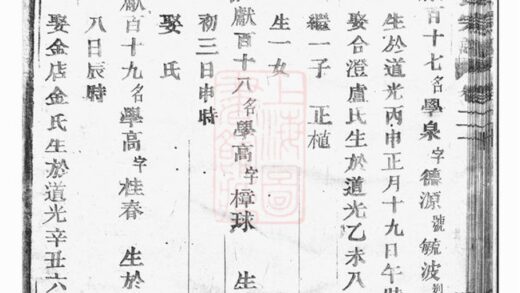 百十七名學泉字德源號毓波
生於道光丙申正月十九日午時
娶合澄盧氏生於道光乙未八
繼一子 正植
生一女
獻百十八名學高字樟球 生
初三日申時
娶氏
獻百十九名學高字桂春 生於
八日辰時
娶金店金氏生於道光辛丑六
上海圖